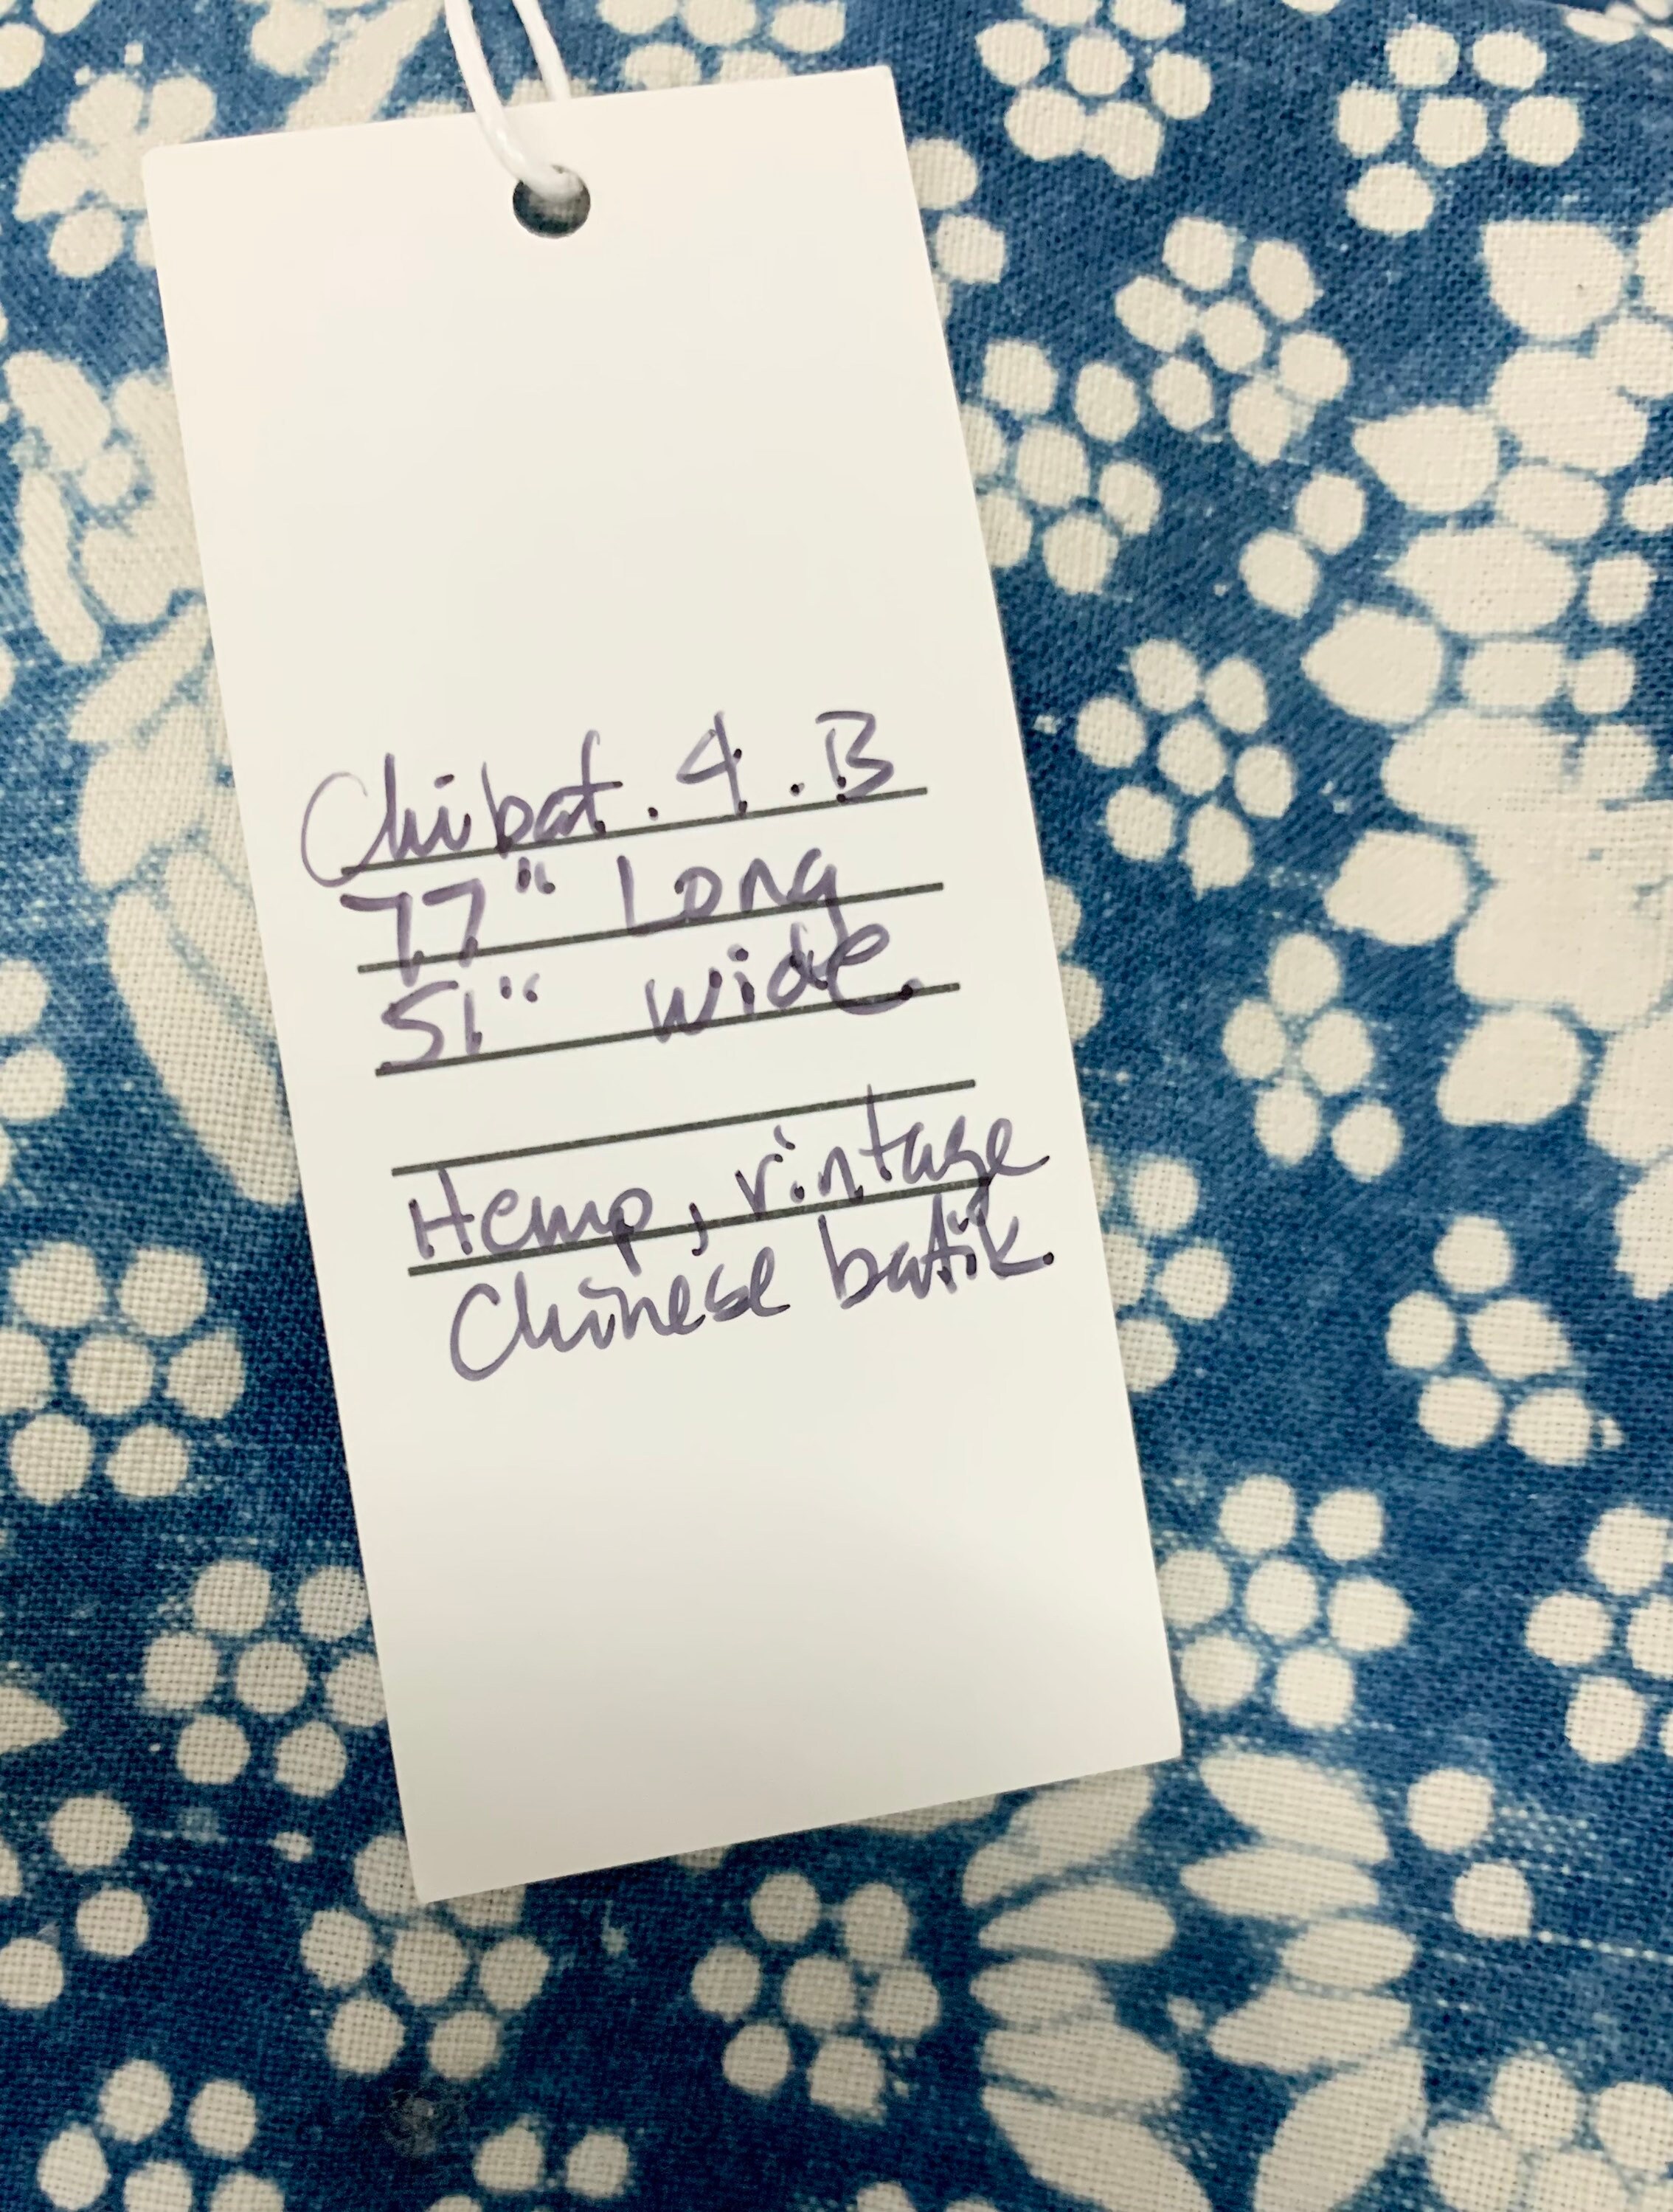 Chibat. 4. B
77" Long
51" wide.
Hemp, vintage
Chinese batik.